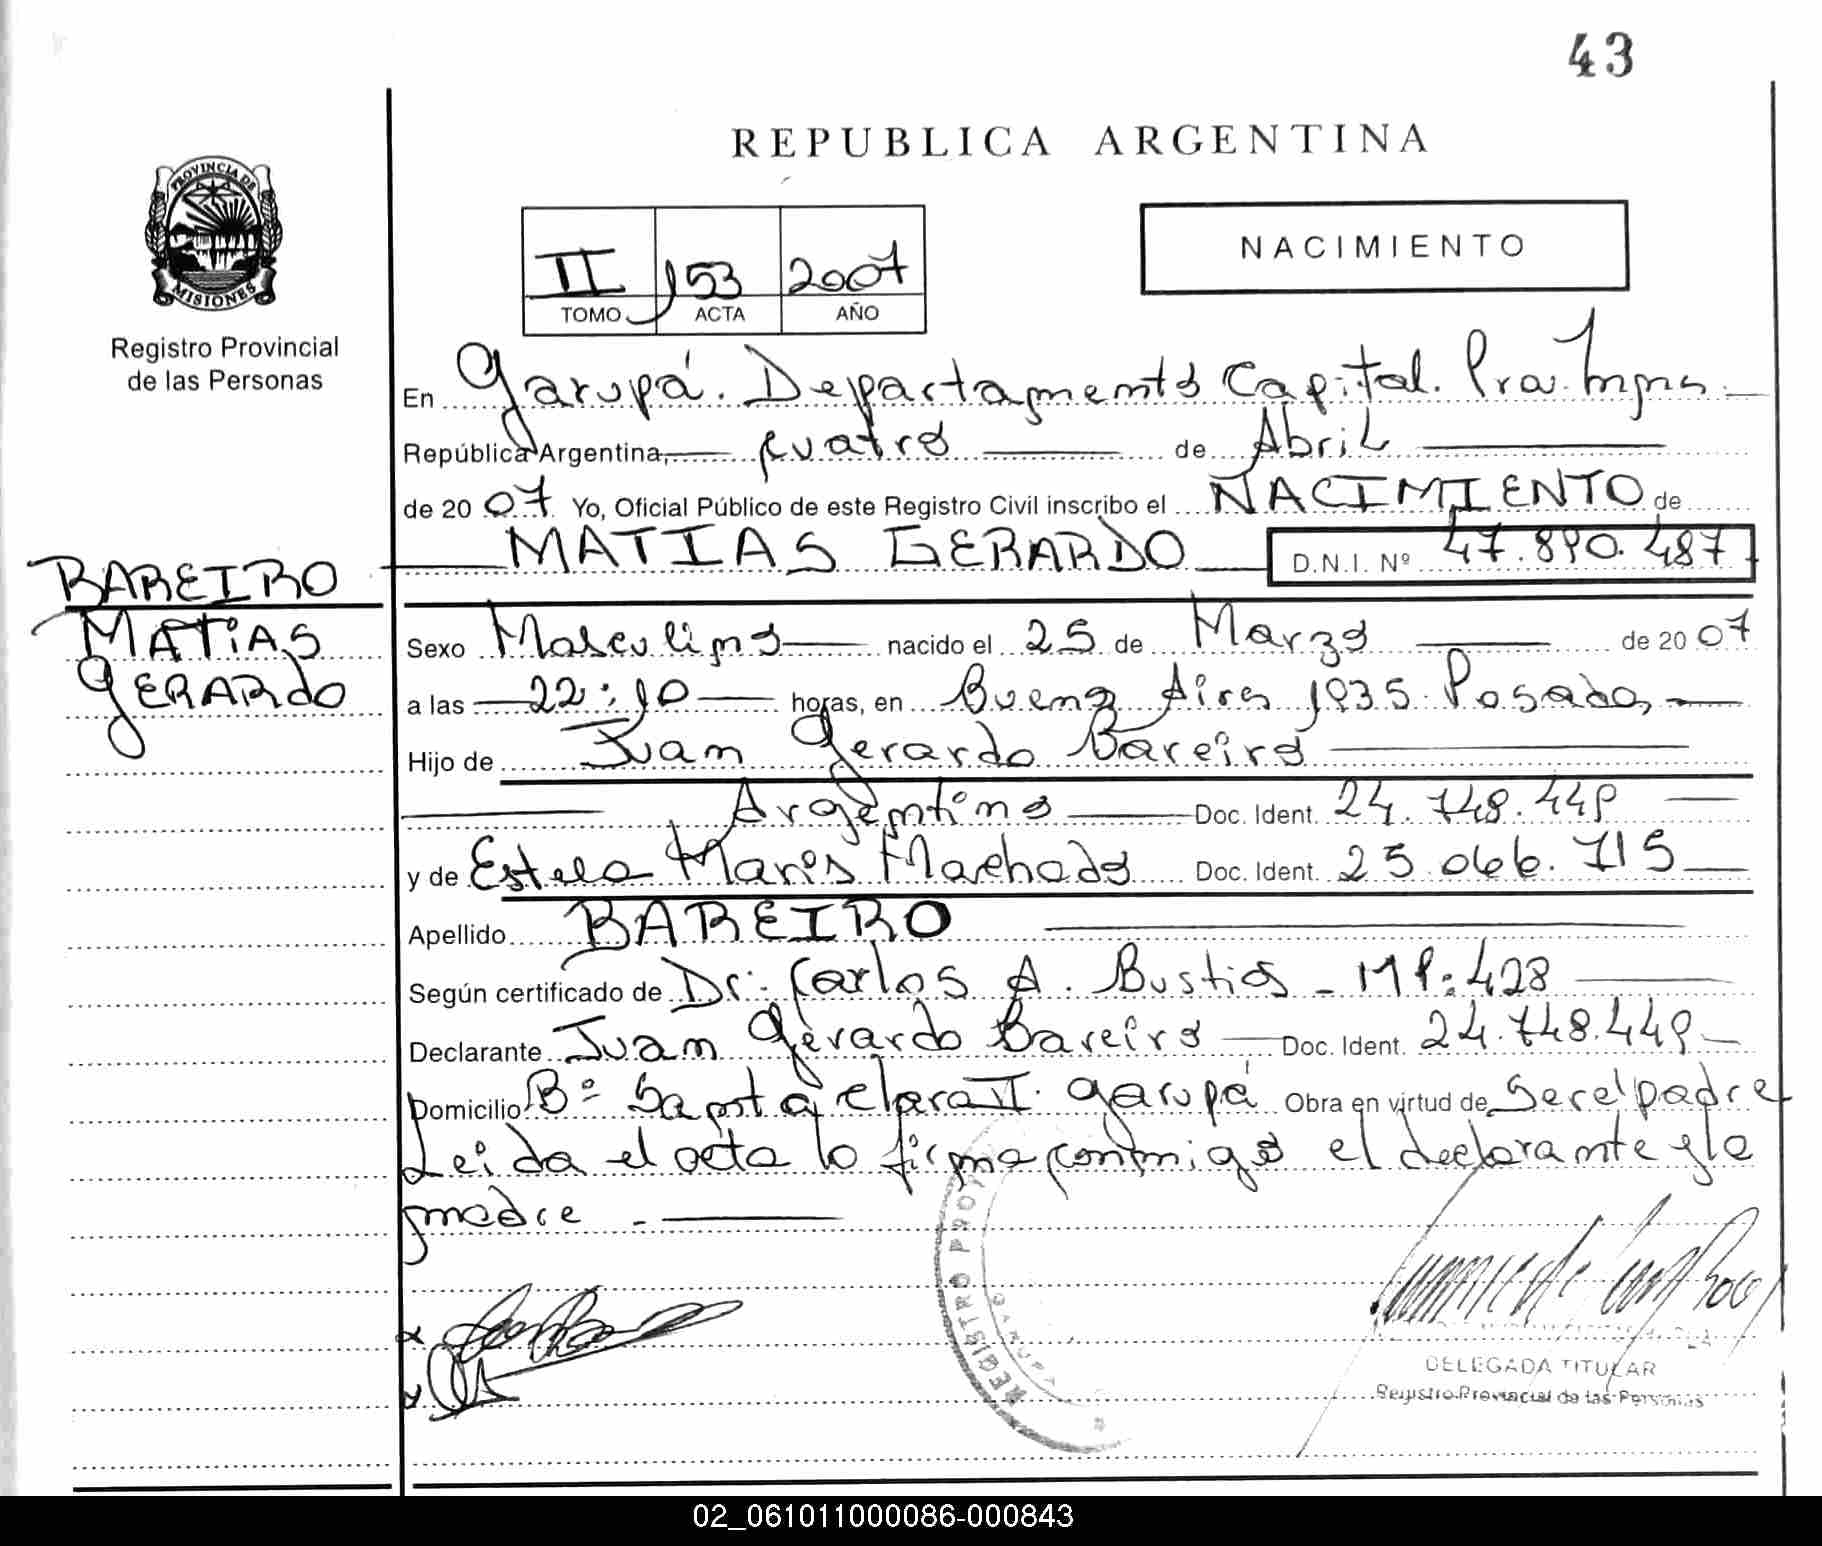 43
REPUBLICA ARGENTINA
PROVINCIA DE
MISIONES
Registro Provincial
de las Personas
II 153 2007
TOMO ACTA AÑO
NACIMIENTO
En Garupá. Departamento Capital. Pcia. Mnes
República Argentina, cuatro de Abril
de 20 07 Yo, Oficial Público de este Registro Civil inscribo el NACIMIENTO de
MATIAS GERARDO D.N.I. Nº 47.890.487
BAREIRO
MATIAS
GERARDO
Sexo Masculino nacido el 25 de Marzo de 20 07
a las 22:10 horas, en Buenos Aires 1935 Posadas
Hijo de Juan Gerardo Bareiro
Argentino Doc. Ident. 24.748.449
y de Estela Maris Machado Doc. Ident. 25.066.715
Apellido BAREIRO
Según certificado de Dr. Carlos A. Bustios - MP: 428
Declarante Juan Gerardo Bareiro Doc. Ident. 24.748.449
Domicilio Bº Santa Clara II. Garupá Obra en virtud de Ser el padre
Leida el acta lo firma conmigo el declarante y la
madre .-
REGISTRO PRO
DELEGADA TITULAR
Registro Provincial de las Personas
02_061011000086-000843